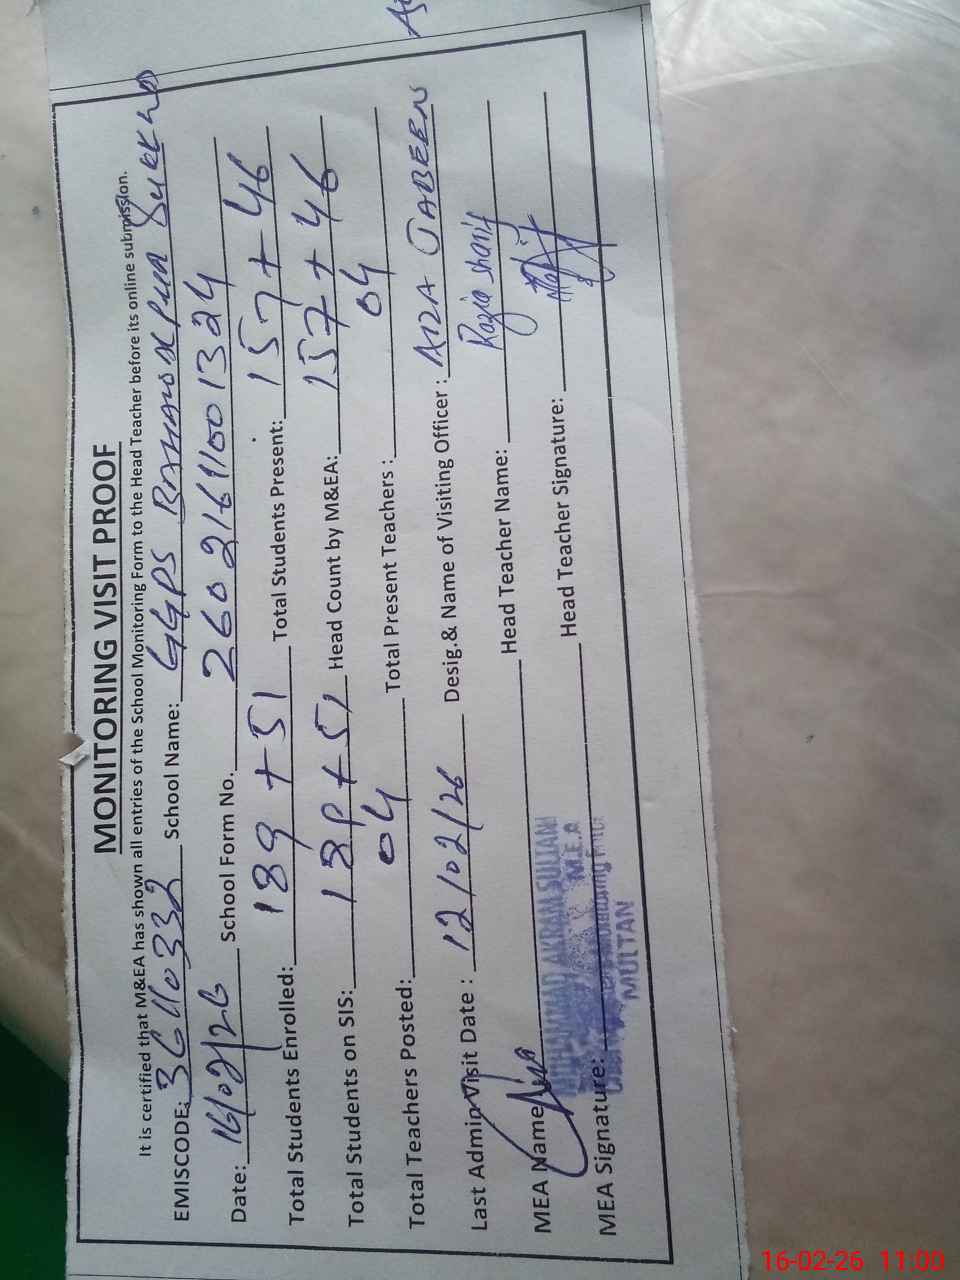 MONITORING VISIT PROOF
It is certified that M&EA has shown all entries of the School Monitoring Form to the Head Teacher before its online submission.
EMISCODE: 36110332 School Name: GGPS
Date: 16/02/26 School Form No. 26021611001324
Total Students Enrolled: 189 + 51 Total Students Present: 157 + 46
Total Students on SIS: 189 + 51 Head Count by M&EA: 157 + 46
Total Teachers Posted: 04 Total Present Teachers : 04
Last Admin Visit Date : 12/02/26 Desig.& Name of Visiting Officer : JABEEN
MEA Name Head Teacher Name: Razia Sharif
MEA Signature: Head Teacher Signature:
MUHAMMAD AKRAM SULTANI
M.E.A
MULTAN
16-02-26 11:00